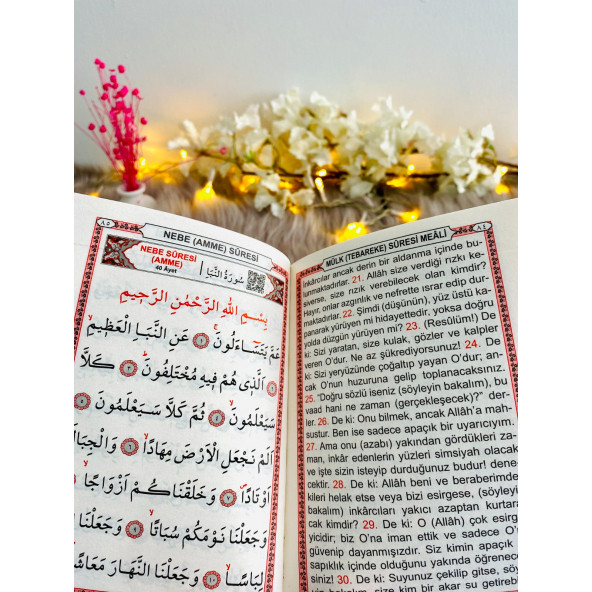 ٨٥
NEBE (AMME) SÛRESİ
NEBE SÛRESİ
(AMME)
40 Âyet
سُورَةُ النَّبَأِ
بِسْمِ اللّٰهِ الرَّحْمٰنِ الرَّحِيمِ
عَمَّ يَتَسَٓاءَلُونَۚ ١ عَنِ النَّبَأِ الْعَظِيمِۙ
٢ اَلَّذٖى هُمْ فِيهِ مُخْتَلِفُونَۜ ٣ كَلَّا
سَيَعْلَمُونَۙ ٤ ثُمَّ كَلَّا سَيَعْلَمُونَ
اَلَمْ نَجْعَلِ الْاَرْضَ مِهَادًاۙ ٦ وَالْجِبَالَ
اَوْتَادًاۖ ٧ وَخَلَقْنَاكُمْ اَزْوَاجًاۙ
وَجَعَلْنَا نَوْمَكُمْ سُبَاتًاۙ ٩ وَجَعَلْنَا
لِبَاسًاۙ ١٠ وَجَعَلْنَا النَّهَارَ مَعَاشًا
٨٤
MÜLK (TEBAREKE) SÛRESİ MEÂLİ
inkârcılar ancak derin bir aldanma içinde bu-
lunmaktadırlar. 21. Allâh size verdiği rızkı ke-
siverse, size rızık verebilecek olan kimdir?
Hayır, onlar azgınlık ve nefrette ısrar edip dur-
maktadırlar. 22. Şimdi (düşünün), yüz üstü ka-
panarak yürüyen mi hidayettedir, yoksa doğru
yolda düzgün yürüyen mi? 23. (Resûlüm!) De
ki: Sizi yaratan, size kulak, gözler ve kalpler
veren O'dur. Ne az şükrediyorsunuz! 24. De
ki: Sizi yeryüzünde çoğaltıp yayan O'dur; an-
cak O'nun huzuruna gelip toplanacaksınız.
25. "Doğru sözlü iseniz (söyleyin bakalım), bu
vaad hani ne zaman (gerçekleşecek)?" der-
ler. 26. De ki: Onu bilmek, ancak Allâh'a mah-
sustur. Ben ise sadece apaçık bir uyarıcıyım.
27. Ama onu (azabı) yakından gördükleri za-
man, inkâr edenlerin yüzleri simsiyah olacak
ve işte sizin isteyip durduğunuz budur! dene-
cektir. 28. De ki: Allâh beni ve beraberimde-
kileri helak etse veya bizi esirgese, (söyleyin
bakalım) inkârcıları yakıcı azaptan kurtara-
cak kimdir? 29. De ki: O (Allâh) çok esirge-
yicidir; biz O'na iman ettik ve sadece O'na
güvenip dayanmışızdır. Siz kimin apaçık bir
sapıklık içinde olduğunu yakında öğrenecek-
siniz! 30. De ki: Suyunuz çekilip gitse, söyle-
yin bakalım, size kim bir akar su getirebilir?